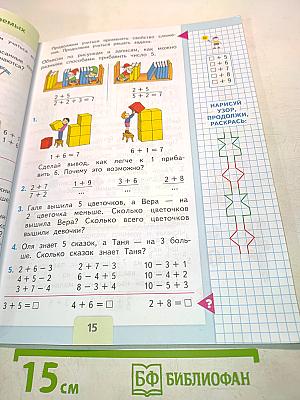 Продолжаем учиться применять свойство сложе-
ния. Продолжаем учиться решать задачи.
Объясни по рисункам и записям, как можно
разными способами прибавить число 5.
2 + 5
5 + 2 + 3 = 7
2 + 5
5 + 2 = 7
1.
1 + 6 = 7
6 + 1 = 7
Сделай вывод, как легче к 1 приба-
вить 6. Почему это возможно?
2. 2 + 7 1 + 9 3 + 6 2 + 8
7 + 2 ... ... ...
3. Галя вышила 5 цветочков, а Вера — на
2 цветочка меньше. Сколько цветочков
вышила Вера? Сколько всего цветочков
вышили девочки?
4. Оля знает 5 сказок, а Таня — на 3 боль-
ше. Сколько сказок знает Таня?
5. 2 + 6 − 3 2 + 7 − 3 10 − 3 + 1
4 + 5 − 2 6 − 4 + 5 10 − 4 + 2
3 + 7 − 4 8 − 3 + 4 10 − 5 + 3
3 + 5 = 4 + 6 = 2 + 8 =
?
15
+ 5
+ 6
+ 8
+ 9
НАРИСУЙ
УЗОР,
ПРОДОЛЖИ,
РАСКРАСЬ:
15 см
БФ БИБЛИОФАН